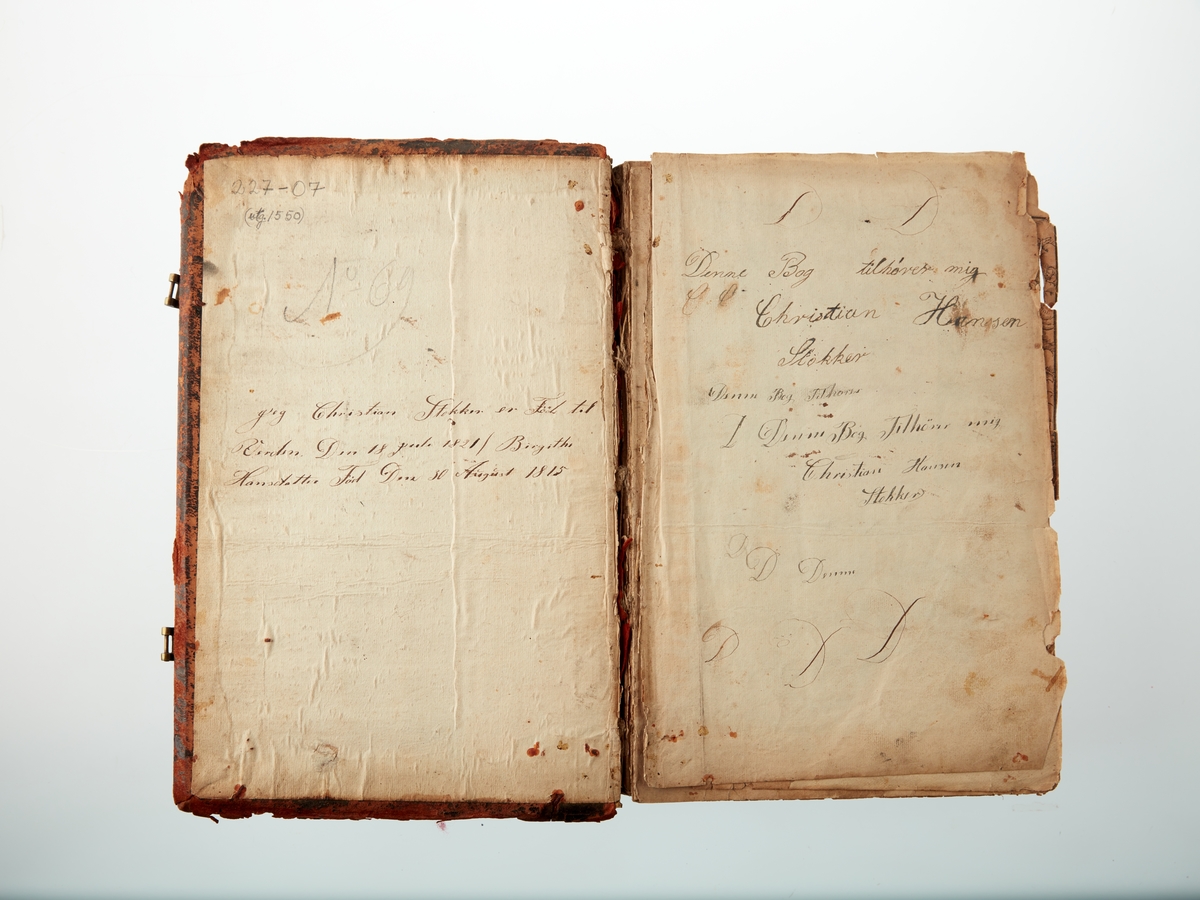 227-07
(utg. 1550)
No 69
Christian Stokker er Föd til
Den 18 1821 / Birgithe
Hansdatter Föd Den 30 August 1815
D D
Denne Bog tilhører mig
C C
Christian Hanssen
Stokker
Denne Bog Tilhøre
1 Denne Bog Tilhöre mig
Christian Hansen
Stokker
D
D Denne
D D D